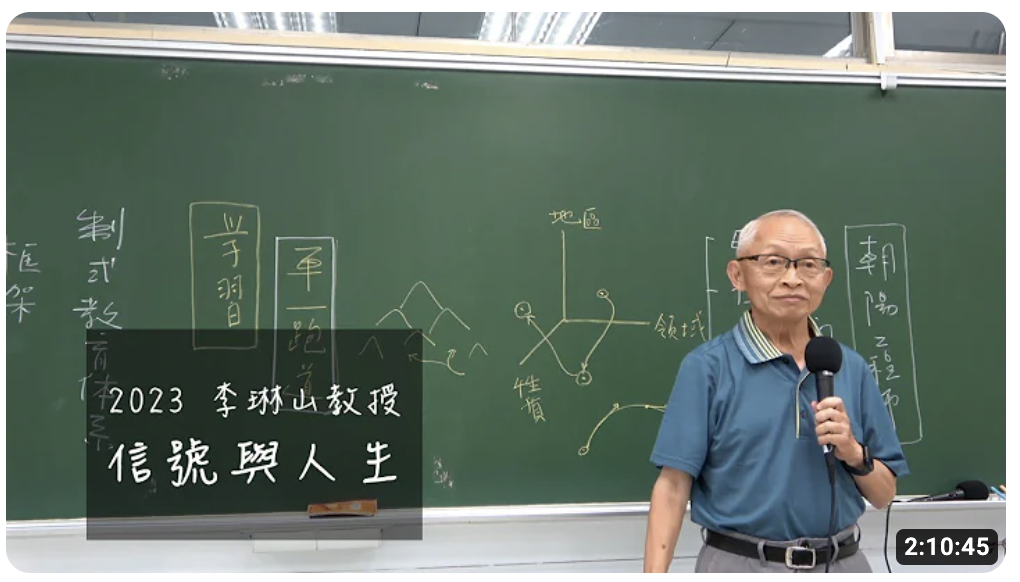 框架
制式教育体系
学習
單一跑道
地區
領域
性質
朝陽工程師
2023 李琳山教授
信號與人生
2:10:45